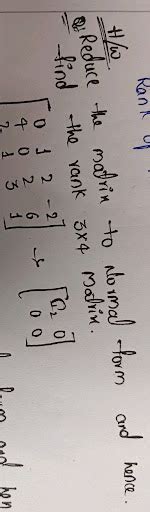 Rank of
H/W
Q: Reduce the matrix to Normal form and hence.
find the rank 3x4 matrix.
[0 1 2 -2
4 0 2 6
2 1 3 1] → [I₂ 0
0 0]
form and hen